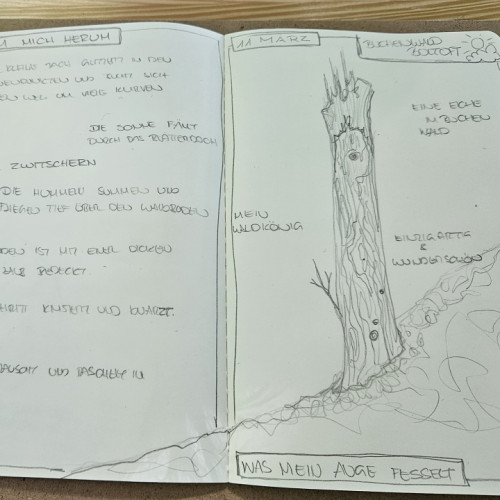 MICH HERUM
BACH GUTHITT IN DEN
UND SUCHT SICH
WEG IM VIELEN KURVEN
DIE SONNE FÄLLT
DURCH DAS BLÄTTERDACH
ZWITSCHERN
DIE HUMMELN SUMMEN UND
FLIEGEN TIEF ÜBER DEN WALDBODEN
DEN IST MIT EINER DICKEN
BEDECKT
KNISTERT UND KNARZT.
RAUSCHT UND RASCHELT IN
11. MÄRZ
BUCHENWALD
EINE EICHE
IM BUCHEN
WALD
MEIN
WALDKÖNIG
EINZIGARTIG
&
WUNDERSCHÖN
WAS MEIN AUGE FESSELT